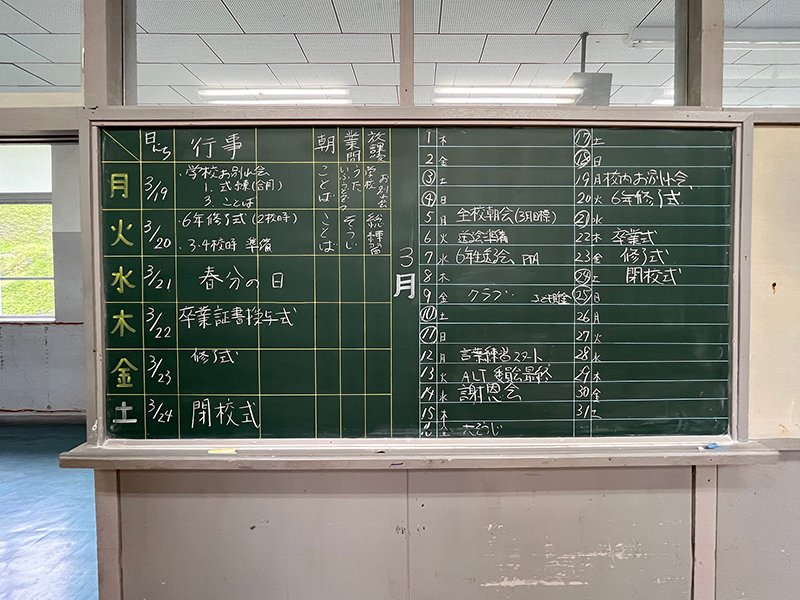 日にち 行事 朝 業間 放課後
月 3/19 ・学校お別れ会
1. 式
3. ことば
ことば
うた
学校お別れ会
火 3/20 ・6年修了式(2校時)
・3.4校時 準備
ことば
そうじ
水 3/21 春分の日
木 3/22 卒業証書授与式
金 3/23 修了式
土 3/24 閉校式
3月
1 木
2 金
3 土
4 日
5 月 全校朝会(3月目標)
6 火 送る会準備
7 水 6年生送る会、PTA
8 木
9 金 クラブ
10 土
11 日
12 月 言葉練習スタート
13 火 ALT 委員会最終
14 水 謝恩会
15 木
大そうじ
17 土
18 日
19 月 校内お別れ会
20 火 6年修了式
21 水
22 木 卒業式
23 金 修了式
24 土 閉校式
25 日
26 月
27 火
28 水
29 木
30 金
31 土